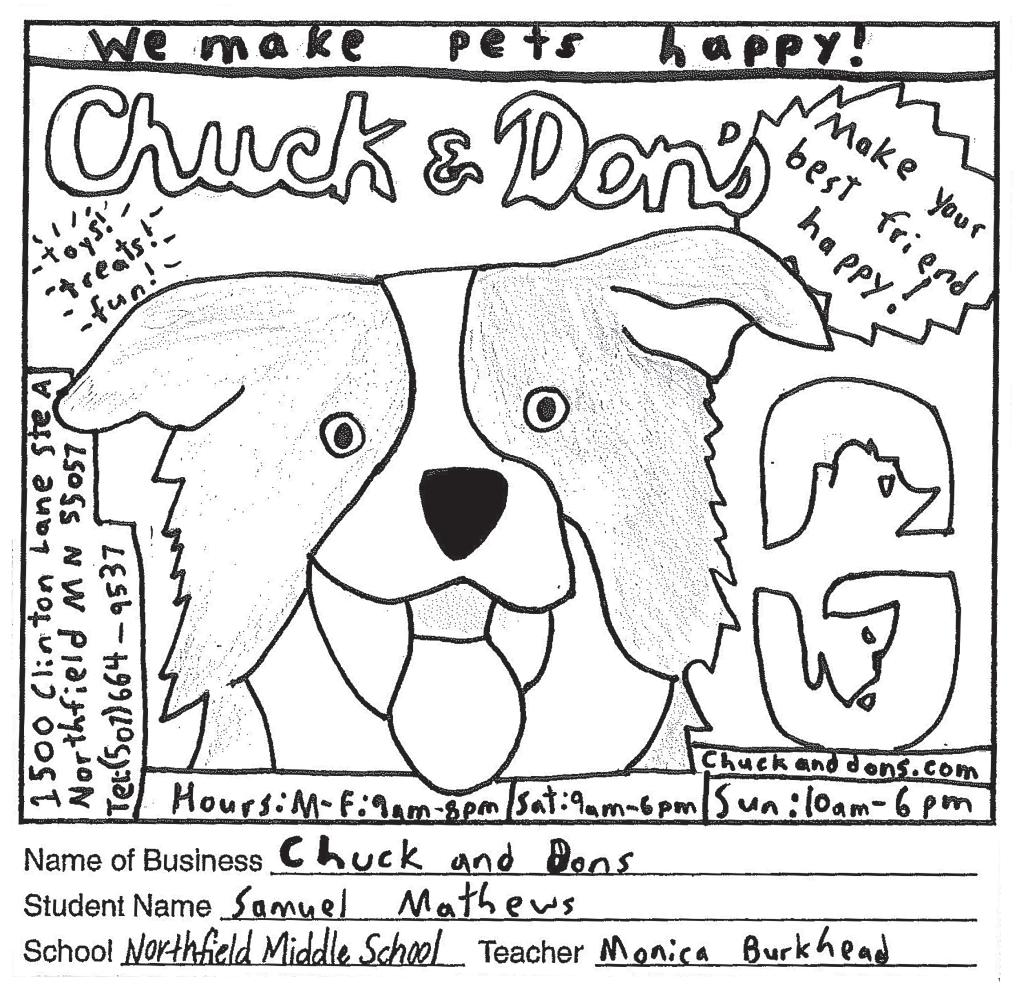 We make pets happy!
Chuck & Don's
Make your
best friend
happy!
toys!
treats!
fun!
1500 Clinton Lane Ste A
Northfield MN 55057
Tel:(507)664-9537
Chuckanddons.com
Hours: M-F: 9am-8pm Sat: 9am-6pm Sun: 10am-6pm
Name of Business Chuck and Dons
Student Name Samuel Mathews
School Northfield Middle School Teacher Monica Burkhead